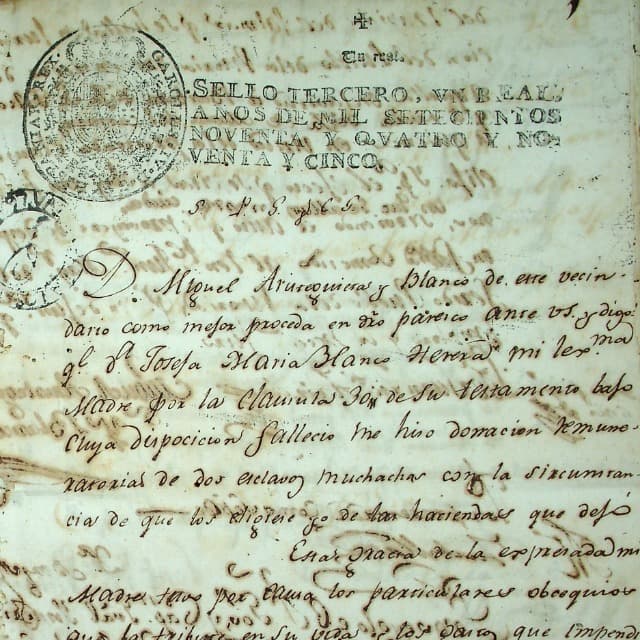 Un real.
SELLO TERCERO, VN REAL,
AÑOS DE MIL SETECIENTOS
NOVENTA Y QVATRO Y NO-
VENTA Y CINCO
D. Miguel y Blanco de este vecin-
dario como mejor proceda en dro pareico ante vs. y digo
q.e D.a Josefa Maria Blanco Herera mi lex.ma
Madre por la Clausula de su testamento bajo
Cuya disposicion fallecio me hiso donacion remune-
ratoria de dos esclavos muchachos con la sircumstan-
cia de que los eligiese yo de las haciendas que dejó
Esta gracia de la expresada mi
Madre tuvo por causa los particulares obsequios
que la tribute en su vida y los que